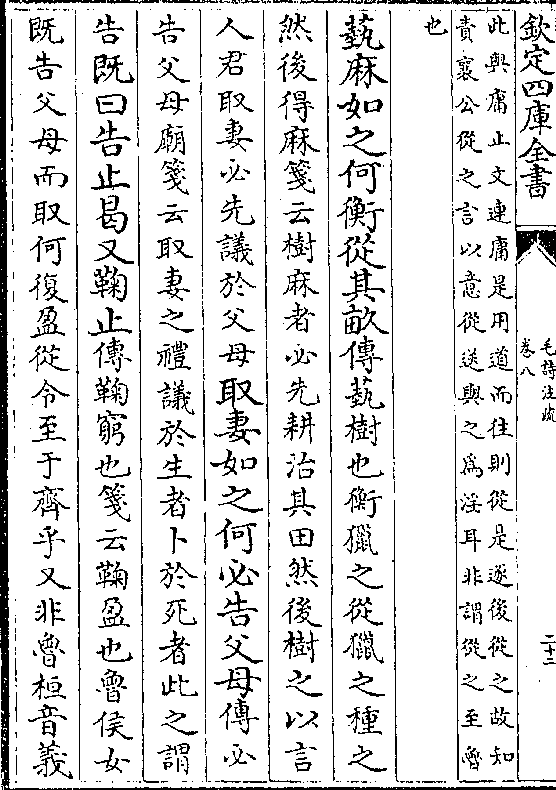 欽定四庫全書
毛詩注疏
卷八
二十二
此與庸止文連庸是用道而往則從是逐後從之故知
責襄公從之言以意從送與之為淫耳非謂從之至魯
也
蓺麻如之何衡從其畝傳蓺樹也衡獵之從獵之種之
然後得麻箋云樹麻者必先耕治其田然後樹之以言
人君取妻必先議於父母取妻如之何必告父母傳必
告父母廟箋云取妻之禮議於生者卜於死者此之謂
告既曰告止曷又鞠止傳鞠窮也箋云鞠盈也魯侯女
既告父母而取何復盈從令至于齊乎又非魯桓音義